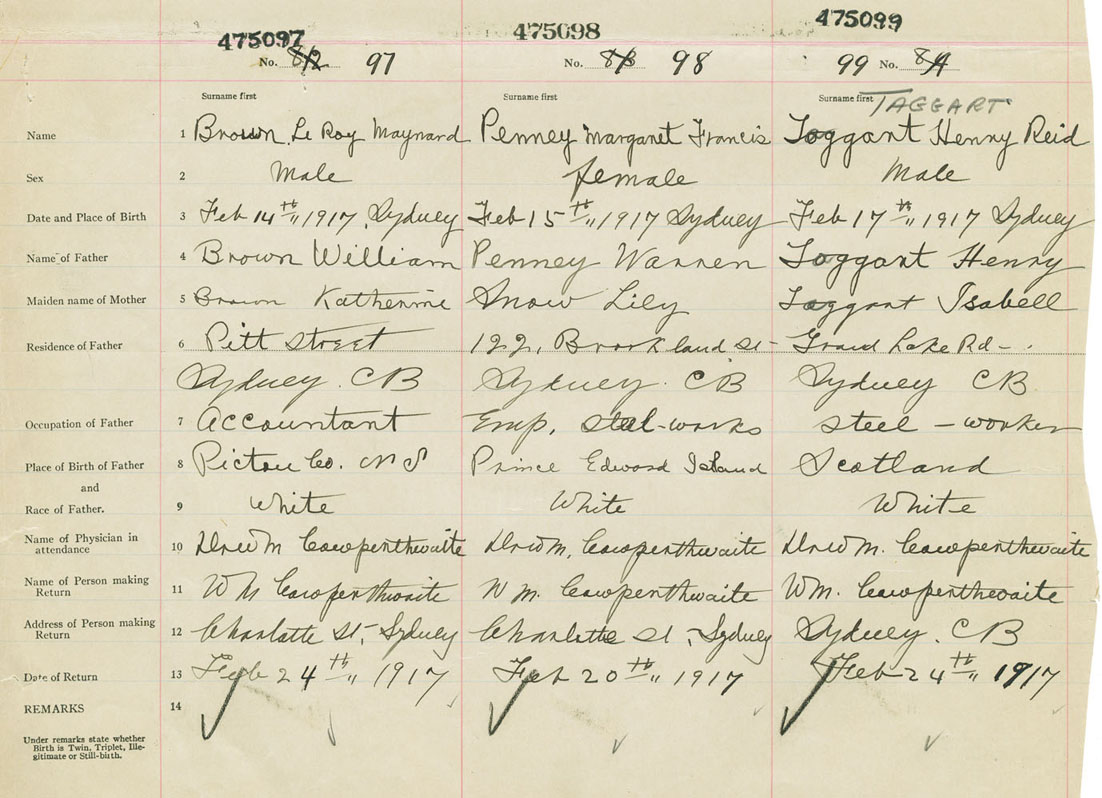 475097 475098 475099
No. 82 97 No. 83 98 99 No. 84
Surname first Surname first Surname first TAGGART
Name 1 Brown, Le Roy Maynard Penney Margaret Francis Toggart Henry Reid
Sex 2 Male female Male
Date and Place of Birth 3 Feb 14th " 1917, Sydney Feb 15th " 1917 Sydney Feb 17th " 1917 Sydney
Name of Father 4 Brown William Penney Warren Toggart Henry
Maiden name of Mother 5 Brown Katherine Snow Lily Toggart Isabell
Residence of Father 6 Pitt Street 122, Brookland St- Grand Lake Rd-
Sydney. CB Sydney. CB Sydney CB
Occupation of Father 7 Accountant Emp. steel-works steel-worker
Place of Birth of Father 8 Pictou Co. NS Prince Edward Island Scotland
and
Race of Father. 9 White White White
Name of Physician in
attendance 10 Dr W M Cowperthwaite Dr W M. Cowperthwaite Dr W M. Cowperthwaite
Name of Person making
Return 11 W M Cowperthwaite W M. Cowperthwaite W M. Cowperthwaite
Address of Person making
Return 12 Charlotte St, Sydney Charlotte St, Sydney Sydney. CB
Date of Return 13 Feb 24th " 1917 Feb 20th " 1917 Feb 24th " 1917
REMARKS 14
Under remarks state whether
Birth is Twin, Triplet, Ille-
gitimate or Still-birth.